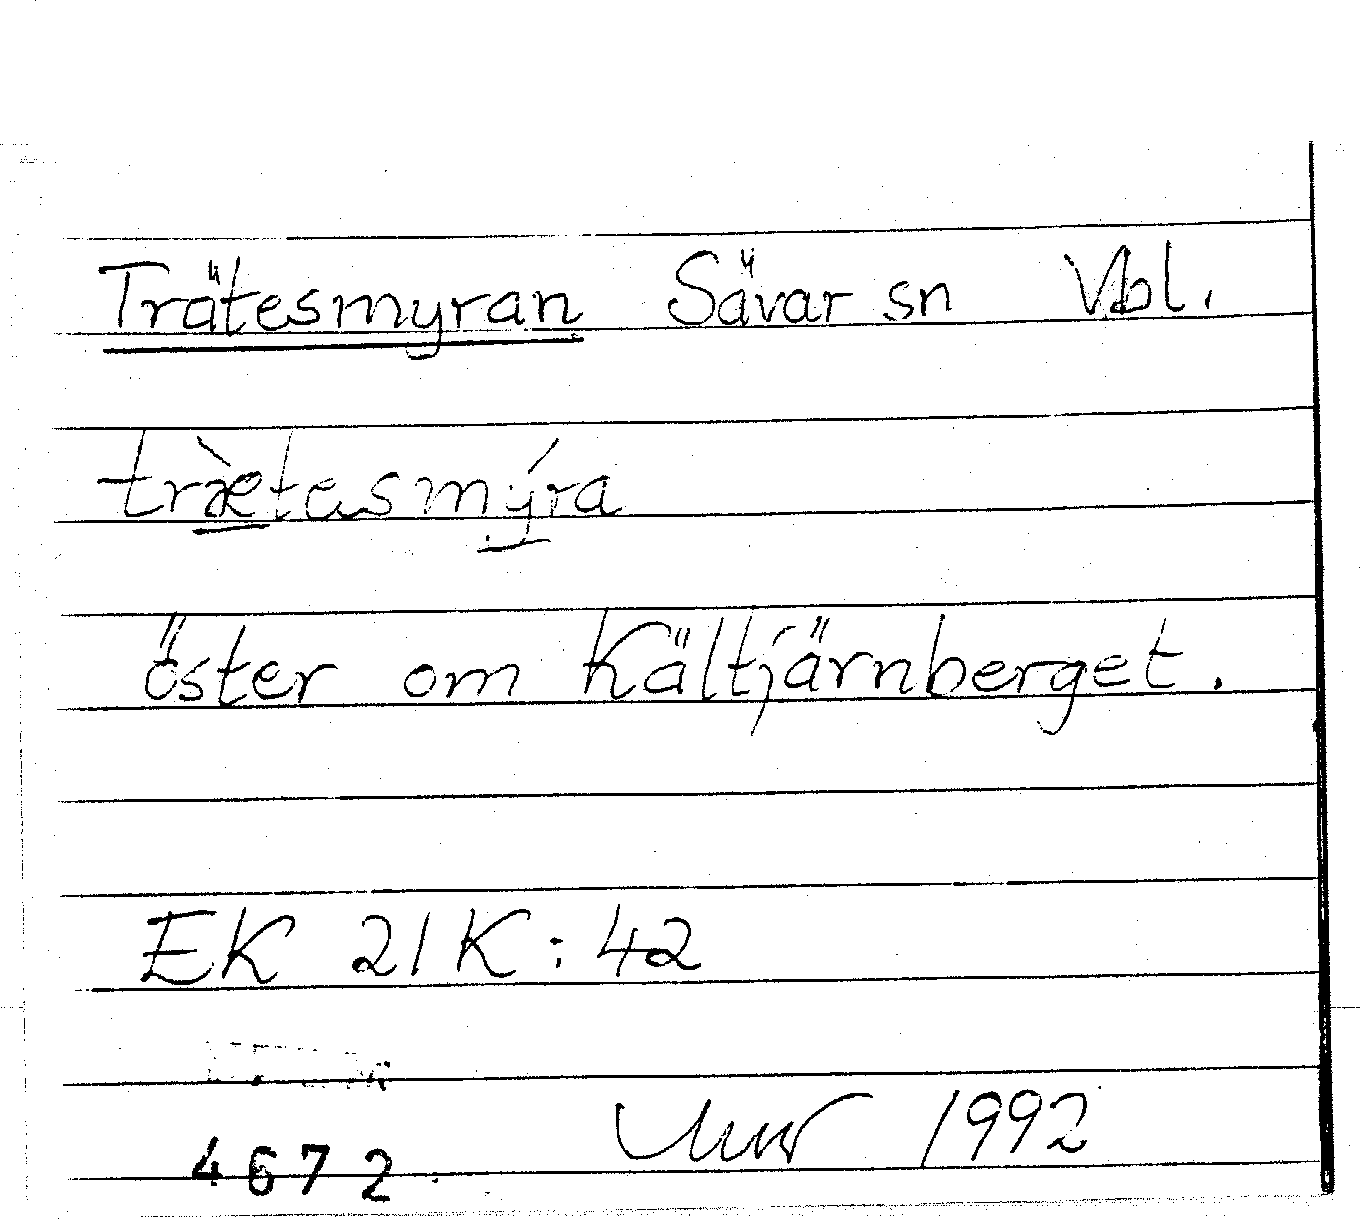 Trätesmyran Sävar sn Vbl.
trætasmýra
öster om Kältjärnberget.
EK 21K:42
1992
4672